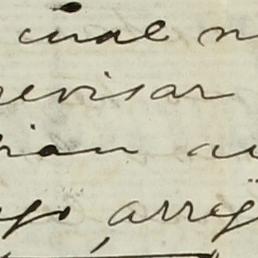 cual n
revisar
rian au
go, arreg